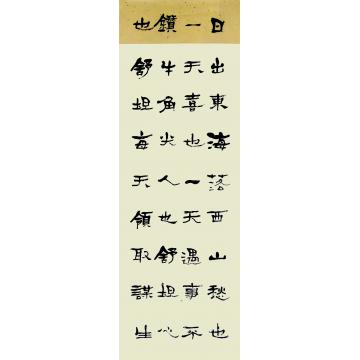 日出東海落西山愁也
一天喜也一天遇事不
鑽牛角尖人也舒坦心
也舒坦每天領取謀生